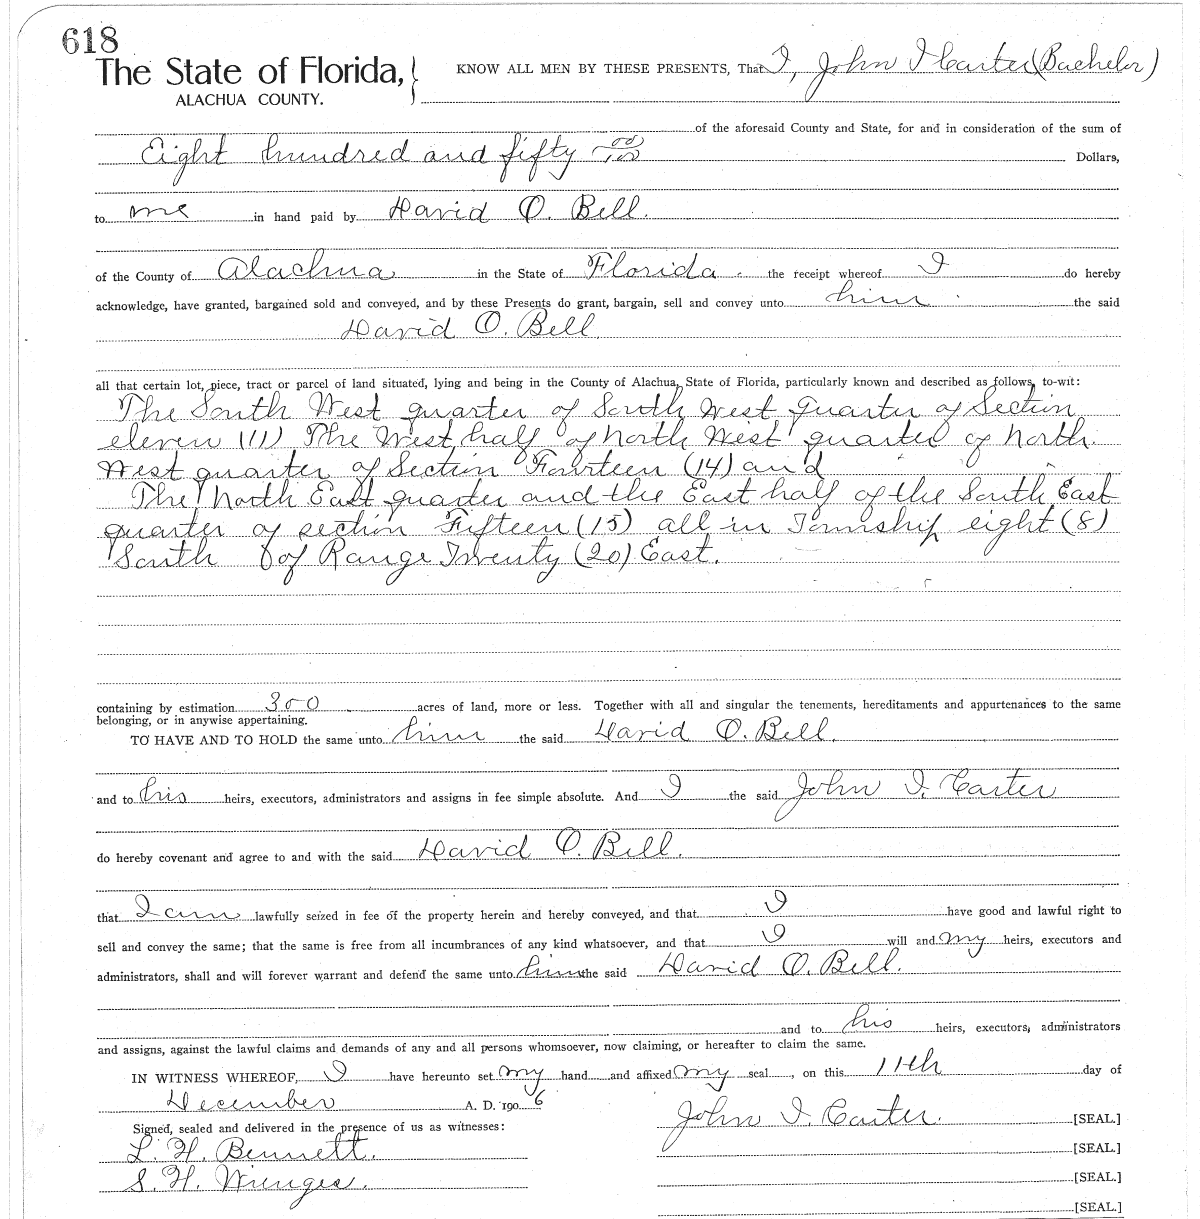 618
The State of Florida,
ALACHUA COUNTY.
KNOW ALL MEN BY THESE PRESENTS, That I, John I Carter (Bachelor)
of the aforesaid County and State, for and in consideration of the sum of
Eight hundred and fifty 00/100 Dollars,
to me in hand paid by David O. Bell.
of the County of Alachua in the State of Florida. the receipt whereof I do hereby
acknowledge, have granted, bargained sold and conveyed, and by these Presents do grant, bargain, sell and convey unto him the said
David O. Bell
all that certain lot, piece, tract or parcel of land situated, lying and being in the County of Alachua, State of Florida, particularly known and described as follows, to-wit:
The South West quarter of South West quarter of Section
eleven (11) The West half of North West quarter of North
West quarter of Section Fourteen (14) and
The North East quarter and the East half of the South East
quarter of section Fifteen (15) all in Township eight (8)
South of Range Twenty (20) East.
containing by estimation 300 acres of land, more or less. Together with all and singular the tenements, hereditaments and appurtenances to the same
belonging, or in anywise appertaining.
TO HAVE AND TO HOLD the same unto him the said David O. Bell.
and to his heirs, executors, administrators and assigns in fee simple absolute. And I the said John I. Carter
do hereby covenant and agree to and with the said David O. Bell.
that I am lawfully seized in fee of the property herein and hereby conveyed, and that I have good and lawful right to
sell and convey the same; that the same is free from all incumbrances of any kind whatsoever, and that I will and my heirs, executors and
administrators, shall and will forever warrant and defend the same unto him the said David O. Bell.
and to his heirs, executors, administrators
and assigns, against the lawful claims and demands of any and all persons whomsoever, now claiming, or hereafter to claim the same.
IN WITNESS WHEREOF, I have hereunto set my hand and affixed my seal, on this 11th day of
December A. D. 1906
John I. Carter. [SEAL.]
Signed, sealed and delivered in the presence of us as witnesses:
L. H. Bennett. [SEAL.]
S. H. Wienges. [SEAL.]
[SEAL.]